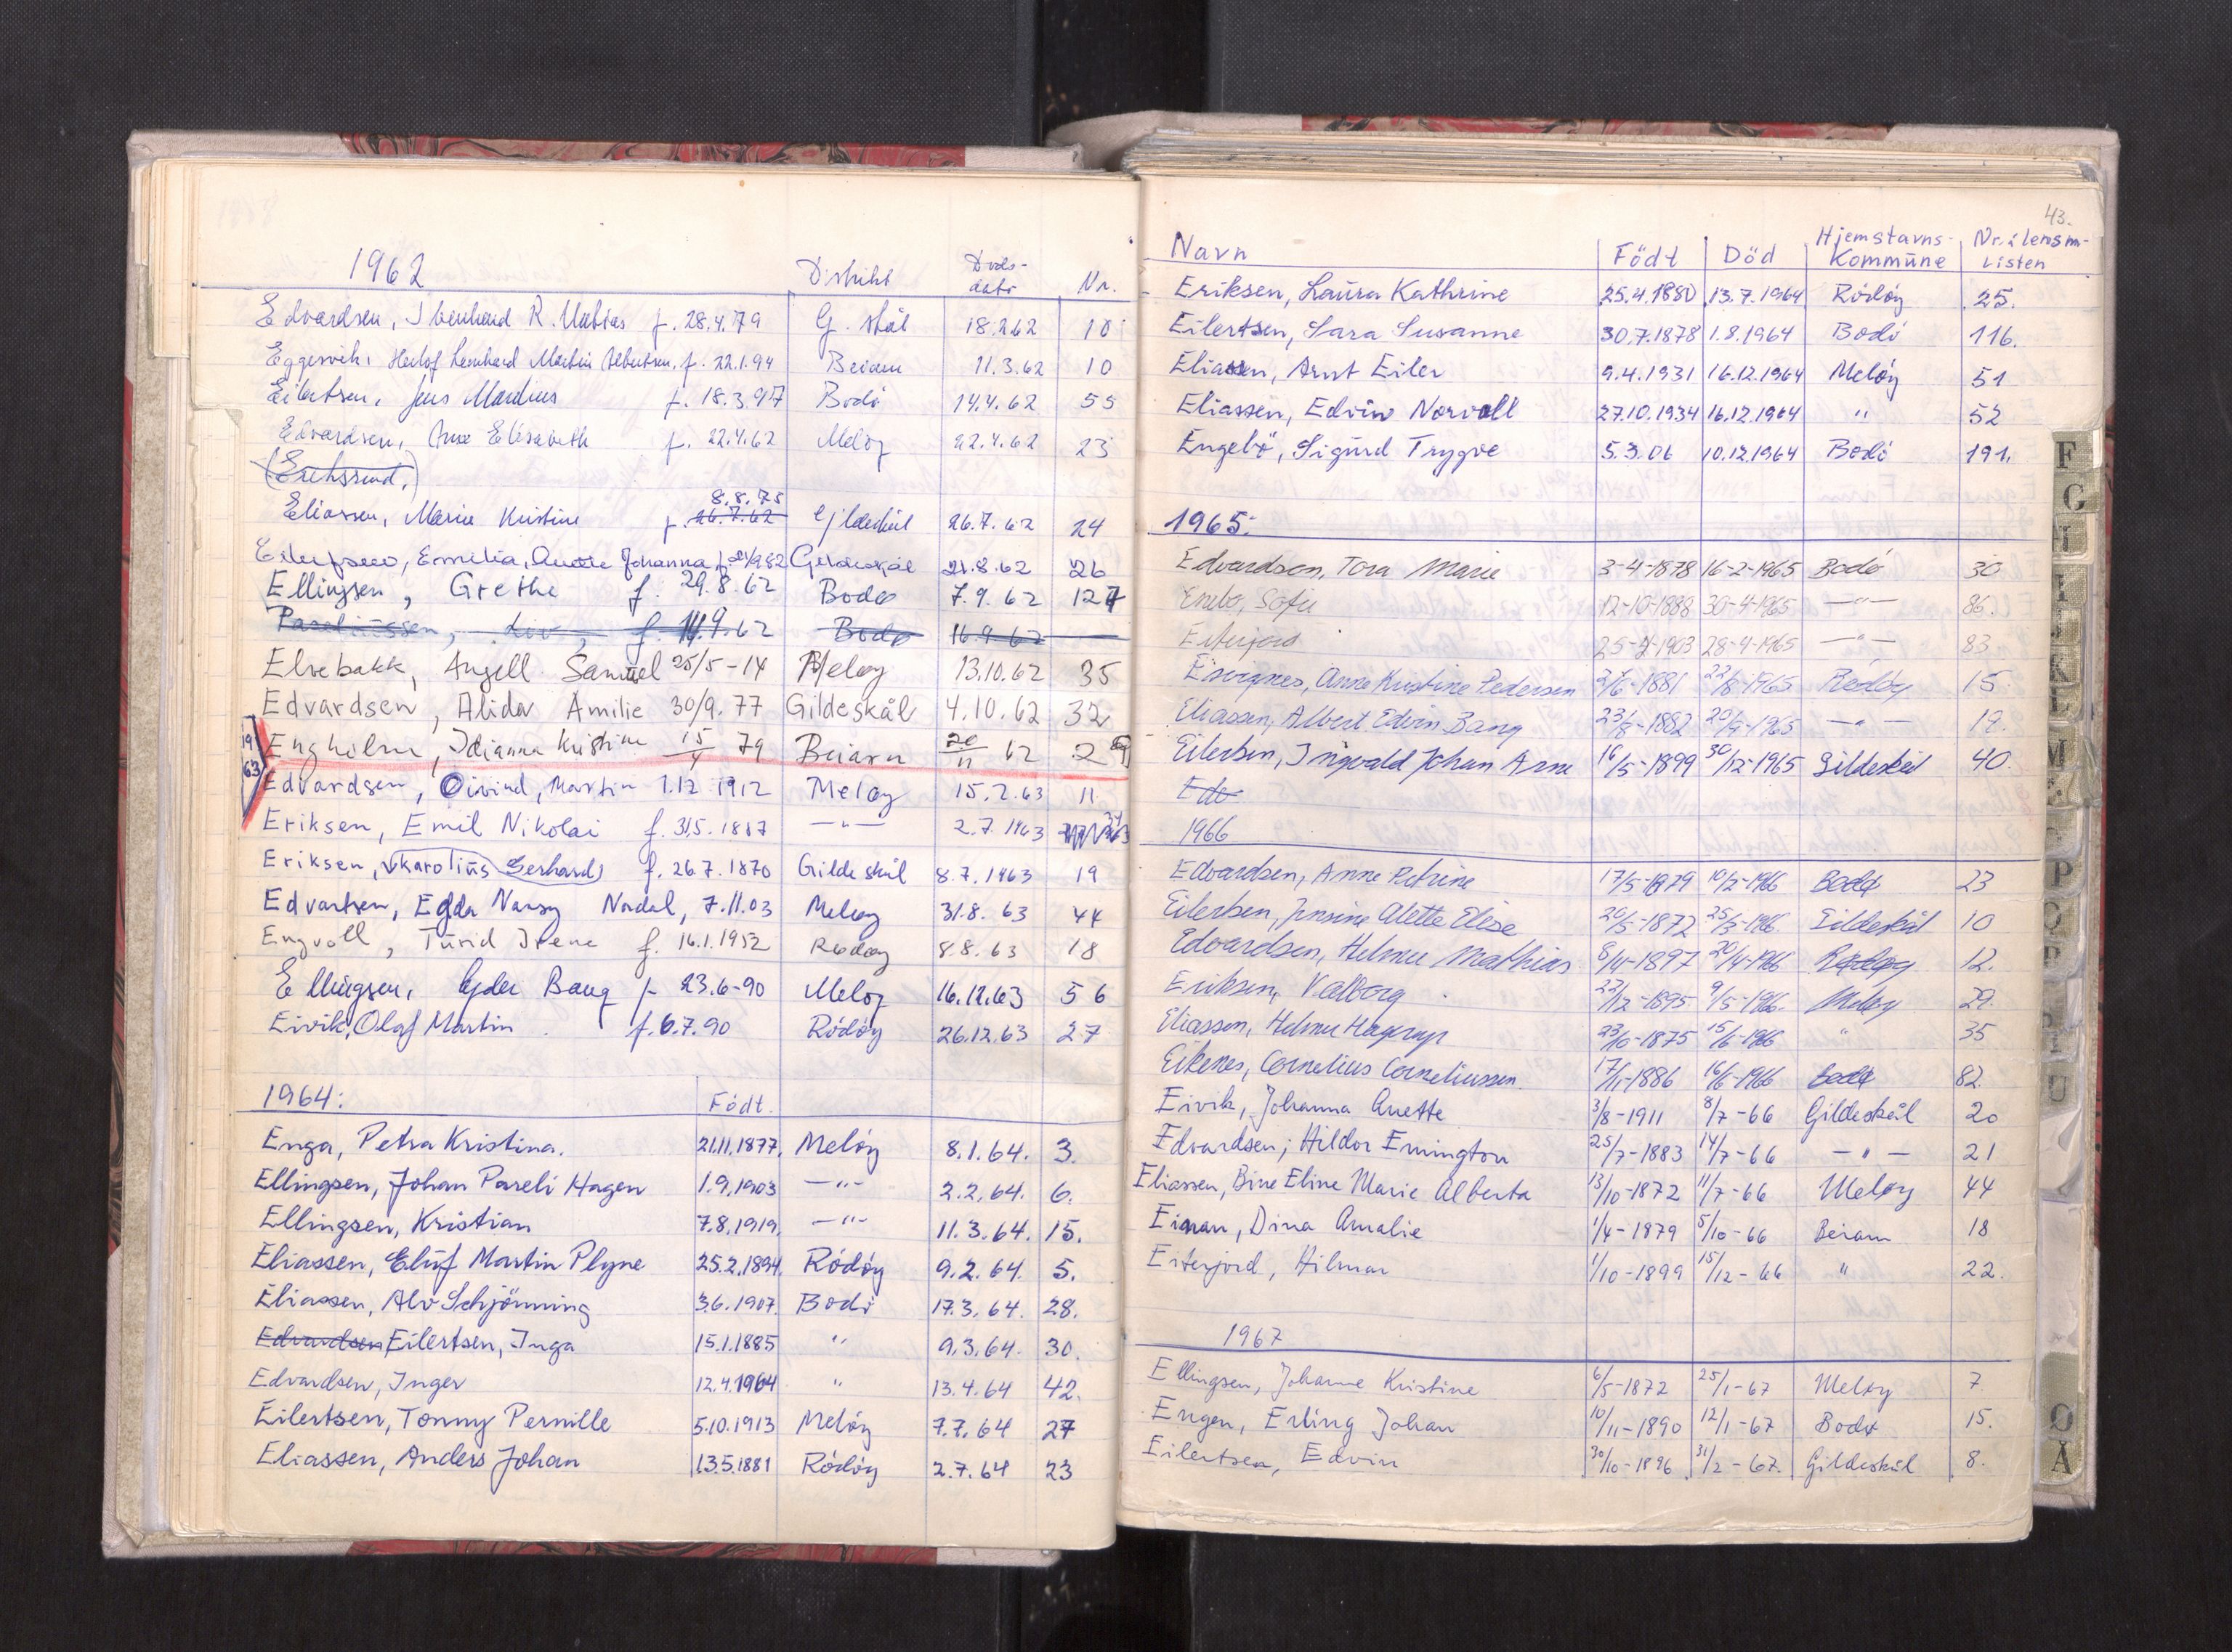 1962 Distrikt Døds-dato Nr.
Edvardsen, R. f. 28.4.79 G. skål 18.2.62 10
Eggesvik, Herlof Lernhard Martin Albertsen, f. 22.1.94 Beiarn 11.3.62 10
Eilertsen, Jens Mardius f. 18.3.97 Bodø 14.4.62 55
Edvardsen, Anne Elisabeth f. 22.4.62 Meløy 22.4.62 23
8.8.78
Eliassen, Marie Kristine f. 26.7.62 Gildeskål 26.7.62 24
Emilia, Anette Johanna Gildeskål 21.8.62 26
Ellingsen, Grethe f. 29.8.62 Bodø 7.9.62 127
Pareliussen, Liv, f. 14.9.62 Bodø 16.9.62
Elvebakk, Angell Samuel 25/5-14 Meløy 13.10.62 35
Edvardsen, Alida Amilie 30/9.77 Gildeskål 4.10.62 32
Engholm, Idianna Kristine 15/4 79 Beiarn 20/11 62 29
1963
Edvardsen, Oivind, Martin 1.12 1912 Meløy 15.2.63 11
Eriksen, Emil Nikolai f. 31.5.1887 —"— 2.7.1963
Eriksen, Karolius Gerhard f. 26.7.1870 Gildeskål 8.7.1963 19
Edvartsen, Egda Nansy Nordal, 7.11.03 Meløy 31.8.63 44
Engvoll, Turid Irene f. 16.1.1952 Rødøy 8.8.63 18
Ellingsen, Peder Bang f. 23.6-90 Meløy 16.12.63 56
Eivik, Olaf Martin f. 6.7.90 Rödöy 26.12.63 27
1964: Födt.
Enga, Petra Kristina. 21.11.1877. Melöy 8.1.64. 3.
Ellingsen, Johan Pareli Hagen 1.9.1903 —"— 2.2.64. 6.
Ellingsen, Kristian 7.8.1919. —"— 11.3.64. 15.
Eliassen, Eluf Martin Plyne 25.2.1894. Rödöy 9.2.64. 5.
Eliassen, Alv Schjönning 3.6.1907. Bodö 17.3.64. 28.
Edvardsen Eilertsen, Inga 15.1.1885 " 9.3.64. 30.
Edvardsen, Inger 12.4.1964 " 13.4.64 42.
Eilertsen, Tonny Pernille 5.10.1913 Melöy 7.7.64 27
Eliassen, Anders Johan 13.5.1881 Rödöy 2.7.64 23
43.
Navn Födt Död Hjemstavns-Kommune Nr. i lensm-listen
Eriksen, Laura Kathrine 25.4.1880 13.7.1964 Rödöy 25.
Eilertsen, Sara Susanne 30.7.1878 1.8.1964 Bodö 116.
Eliassen, Arnt Eiler 9.4.1931 16.12.1964 Melöy 51
Eliassen, Edvin Norvall 27.10.1934 16.12.1964 " 52
Engebö, Sigurd Trygve 5.3.06 10.12.1964 Bodö 191.
1965:
Edvardsen, Tora Marie 3-4-1878 16-2-1965 Bodö 30
Enebo, Sofie 12-10-1888 30-4-1965 —"— 86.
Eiterjord 28-4-1965 —"— 83
Anne Kristine Pedersen 22/8-1965 Rödöy 15.
Eliassen, Albert Edvin Bang 23/8-1882 —"— 19.
Eilertsen, Ingvald Johan Arne 16/5-1899 30/12-1965 Gildeskål 40.
Edv
1966
Edvardsen, Anne Petrine 17/5-1879 10/2-1966 Bodø 23
Eilertsen, Jensine Alette Elise 20/5-1872 25/3-1966. Gildeskål 10
Edvardsen, Helmer Mathias 8/11-1897 20/4-1966 Rødøy 12.
Eriksen, Valborg 22/12-1895 9/5-1966. Meløy 29.
Eliassen, Helmer Hagerup 23/10-1875 15/6-1966 " 35
Eikenes, Cornelius Corneliussen. 17/11-1886 16/6-1966 Bodø 82.
Eivik, Johanna Anette 3/8-1911 8/7-66 Gildeskål 20
Edvardsen, Hildor Emington 25/7-1883 14/7-66 —"— 21
Eliassen, Bine Eline Marie Alberta 13/10-1872 11/7-66 Meløy 44
Einan, Dina Amalie 1/4-1879 5/10-66 Beiarn 18
Eiterjord, Hilmar 1/10-1899 15/12-66 " 22.
1967
Ellingsen, Johanne Kristine 6/5-1872 25/1-67 Meløy 7
Engen, Erling Johan 10/11-1890 12/1-67 Bodø 15.
Eilertsen, Edvin 30/10-1896 31/2-67. Gildeskål 8.
F
G
H
I
J
K
L
M
P
O
U
Ø
Å